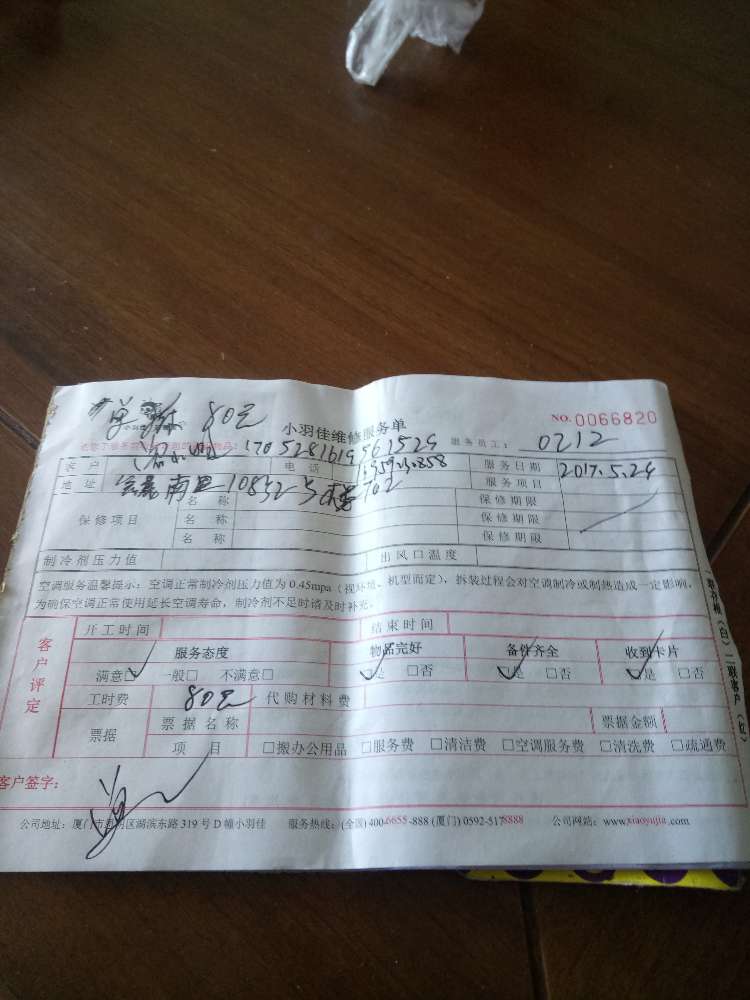 80元
小羽佳维修服务单
NO.0066820
服务员工： 0212
客户 电话 服务日期 2017.5.24
地址 南里 服务项目
保修项目
名称 保修期限
名称 保修期限
名称 保修期限
制冷剂压力值 出风口温度
空调服务温馨提示：空调正常制冷剂压力值为0.45mpa（视环境、机型而定），拆装过程会对空调制冷或制热造成一定影响，
为确保空调正常使用延长空调寿命，制冷剂不足时请及时补充。
客户评定
开工时间 结束时间
服务态度 物品完好 备件齐全 收到卡片
满意☑ 一般□ 不满意□ ☑是 □否 ☑是 □否 ☑是 □否
工时费 80元 代购材料费
票据 票据名称 票据金额
项目 □搬办公用品 □服务费 □清洁费 □空调服务费 □清洗费 □疏通费
客户签字：
公司地址：厦门市思明区湖滨东路319号D幢小羽佳 服务热线：(全国)400-6655-888 (厦门)0592-5178888 公司网站：www.xiaoyujia.com